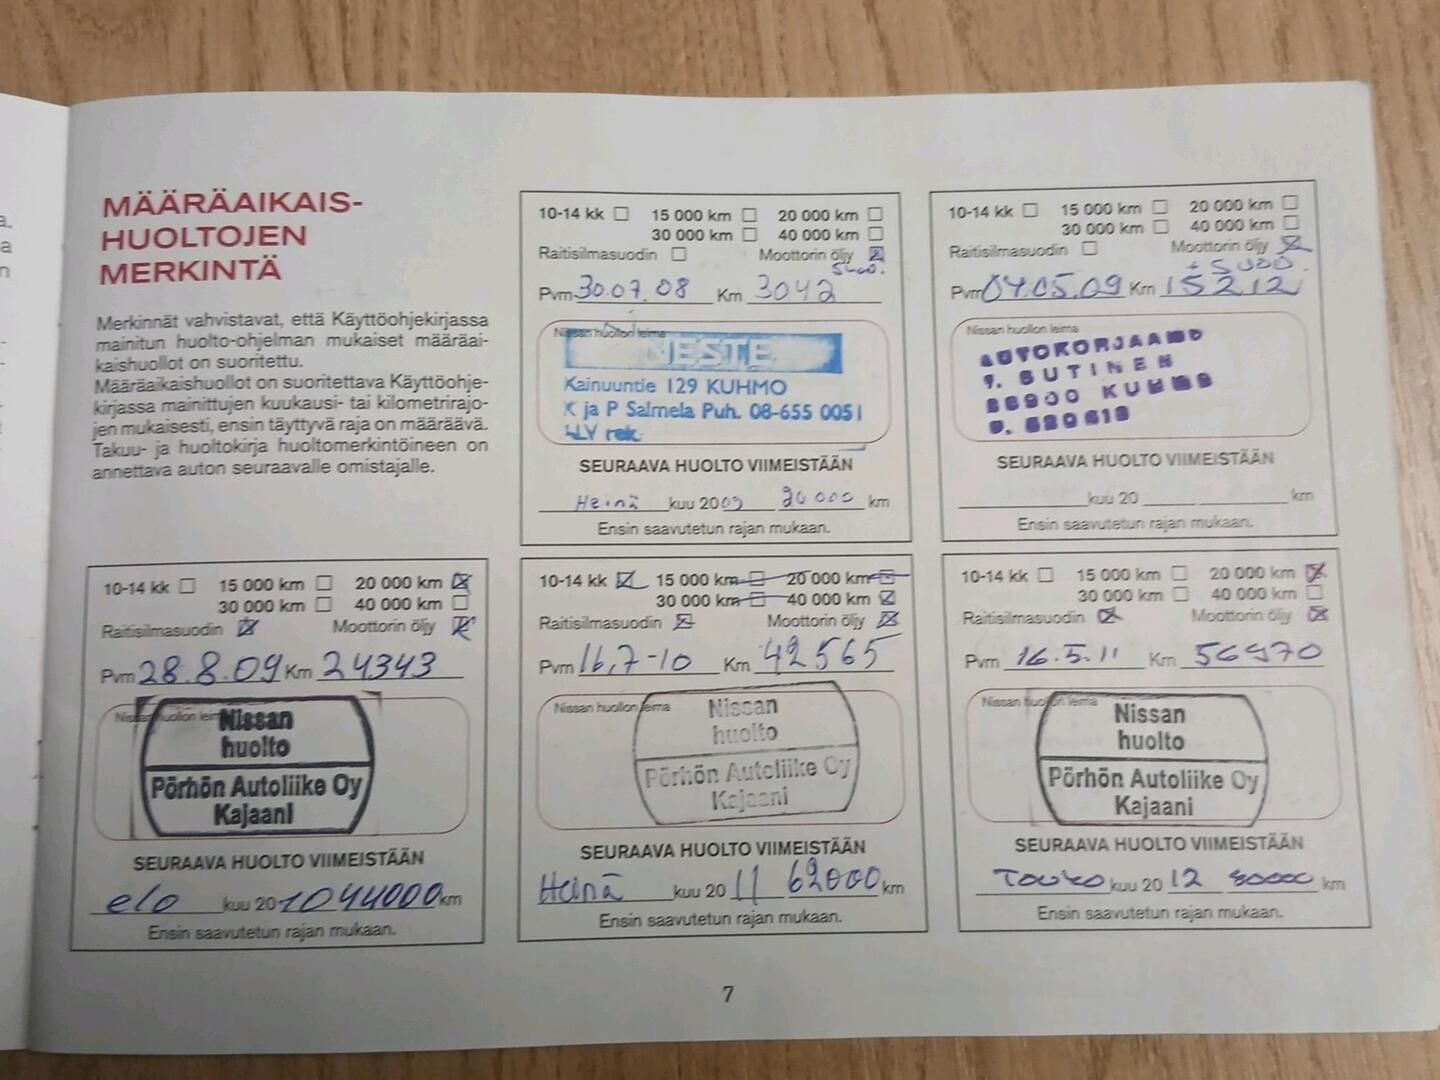 MÄÄRÄAIKAIS-
HUOLTOJEN
MERKINTÄ
Merkinnät vahvistavat, että Käyttöohjekirjassa
mainitun huolto-ohjelman mukaiset määräai-
kaishuollot on suoritettu.
Määräaikaishuollot on suoritettava Käyttöohje-
kirjassa mainittujen kuukausi- tai kilometrirajo-
jen mukaisesti, ensin täyttyvä raja on määräävä.
Takuu- ja huoltokirja huoltomerkintöineen on
annettava auton seuraavalle omistajalle.
10-14 kk 15 000 km 20 000 km
30 000 km 40 000 km
Raitisilmasuodin Moottorin öljy
Suod.
Pvm 30.07.08 Km 3042
Nissan huollon leima
NESTE
Kainuuntie 129 KUHMO
K ja P Salmela Puh. 08-655 0051
ALV rek.
SEURAAVA HUOLTO VIIMEISTÄÄN
Heinä kuu 2009 20000 km
Ensin saavutetun rajan mukaan.
10-14 kk 15 000 km 20 000 km
30 000 km 40 000 km
Raitisilmasuodin Moottorin öljy
+ SUOD.
Pvm 04.05.09 Km 15212
Nissan huollon leima
AUTOKORJAAMO
KUHMO
SEURAAVA HUOLTO VIIMEISTÄÄN
kuu 20 km
Ensin saavutetun rajan mukaan.
10-14 kk 15 000 km 20 000 km
30 000 km 40 000 km
Raitisilmasuodin Moottorin öljy
Pvm 28.8.09 Km 24343
Nissan huollon leima
Nissan
huolto
Pörhön Autoliike Oy
Kajaani
SEURAAVA HUOLTO VIIMEISTÄÄN
elo kuu 2010 44000 km
Ensin saavutetun rajan mukaan.
10-14 kk 15 000 km 20 000 km
30 000 km 40 000 km
Raitisilmasuodin Moottorin öljy
Pvm 16.7-10 Km 42565
Nissan huollon leima
Nissan
huolto
Pörhön Autoliike Oy
Kajaani
SEURAAVA HUOLTO VIIMEISTÄÄN
Heinä kuu 20 11 62000 km
Ensin saavutetun rajan mukaan.
10-14 kk 15 000 km 20 000 km
30 000 km 40 000 km
Raitisilmasuodin Moottorin öljy
Pvm 16.5.11 Km 56970
Nissan huollon leima
Nissan
huolto
Pörhön Autoliike Oy
Kajaani
SEURAAVA HUOLTO VIIMEISTÄÄN
Touko kuu 20 12 80000 km
Ensin saavutetun rajan mukaan.
7